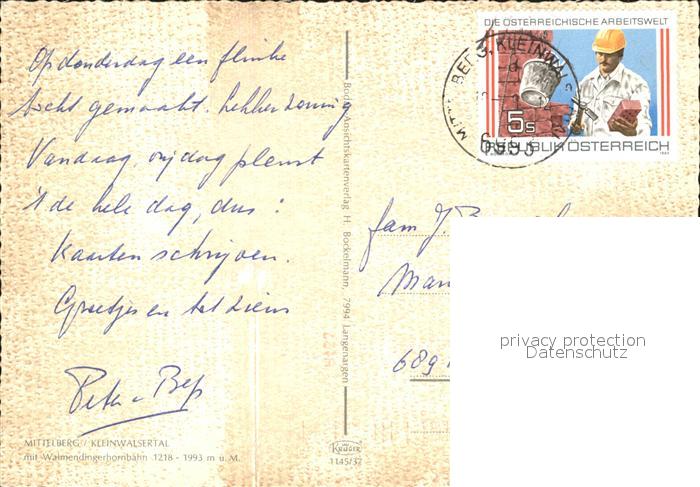 Op donderdag een flinke
tocht gemaakt. Lekker zonnig
Vandaag, vrijdag plenst
't de hele dag, dus:
kaarten schrijven.
Groetjes en tot ziens
Peter en Bep
MITTELBERG / KLEINWALSERTAL
mit Walmendingerhornbahn 1218 - 1993 m ü. M.
Bodan-Ansichtskartenverlag H. Bockelmann, 7994 Langenargen
KRÜGER
1145/37
DIE ÖSTERREICHISCHE ARBEITSWELT
5s
REPUBLIK ÖSTERREICH
KLEINWALS
fam J.
689
privacy protection
Datenschutz